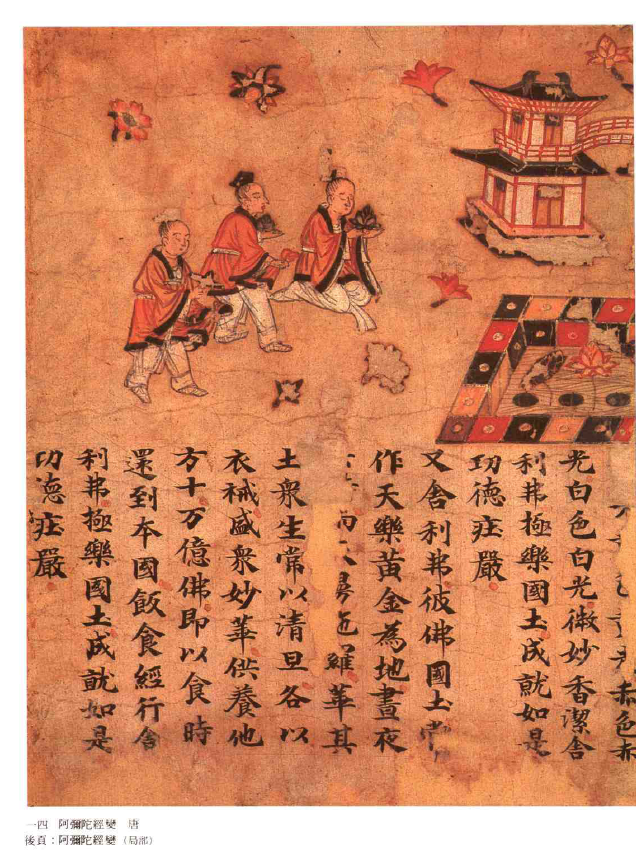 赤色赤
光白色白光微妙香潔舍
利弗極樂國土成就如是
功德庄嚴
又舍利弗彼佛國土常
作天樂黃金為地晝夜
羅華其
土衆生常以清旦各以
衣裓盛衆妙華供養他
方十万億佛即以食時
還到本國飯食經行舍
利弗極樂國土成就如是
功德庄嚴
一四 阿彌陀經變 唐
後頁：阿彌陀經變（局部）